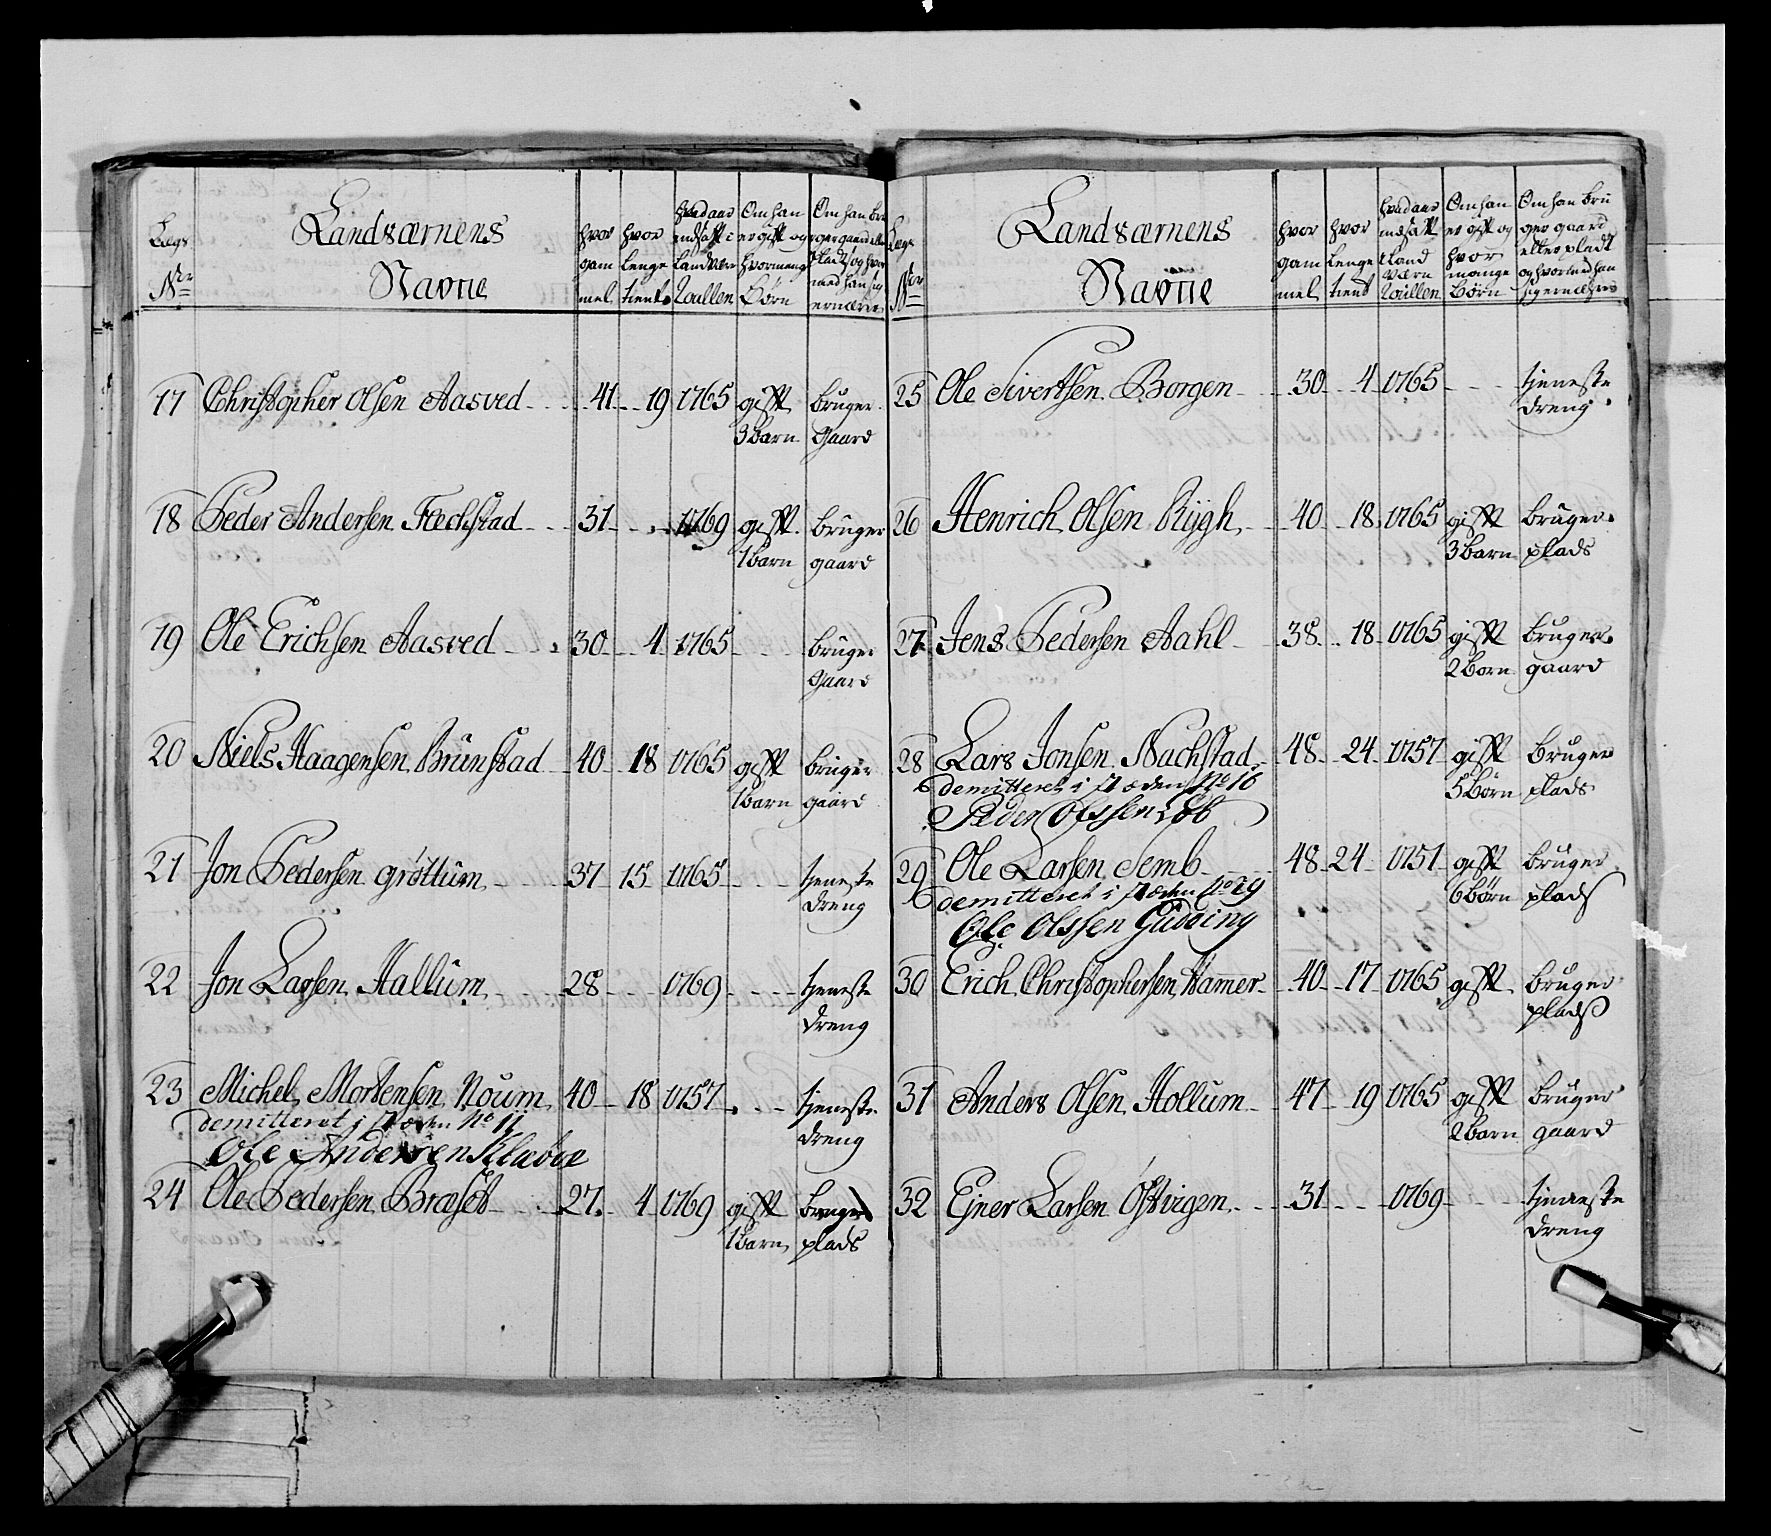 Lægs
Nr
Landværnens
Navne
hvor
gam
mel
hvor
lenge
tient
hvad aar
indsatt i
Landværn
Rullen
Om han
er gift og
hvormang
Børn
Om han bru
ger gaard eller
plads og hvor
med han sig
ernærer
17 Christopher Olsen Aasved 41 19 1765 gifft bruger
3 barn gaard
18 Peder Andersen Flechstad 31 1769 gifft bruger
1 barn gaard
19 Ole Erichsen Aasved 30 4 1765 bruger
gaard
20 Niels Haagensen Brunstad 40 18 1765 gifft bruger
1 barn gaard
21 Jon Pedersen grøttum 37 15 1765 tjeneste
dreng
22 Jon Larsen Hallum 28 1769 tjeneste
dreng
23 Michel Mortensen Noum 40 18 1757 tjeneste
demitteret i stæden No 11 dreng
Ole Andersen Klæve
24 Ole Pedersen Bræset 27 4 1769 gifft bruger
1 barn plads
Lægs
Nor
Landværnens
Navne
hvor
gam
mel
hvor
lenge
tient
hvad aar
indsatt
i Land
værn
Rullen
Om han
er gift og
hvor
mange
Børn
Om han bru
ger gaard
eller plads
og hvormed han
sig ernærer
25 Ole Sivertsen Borgen 30 4 1765 tjeneste
dreng
26 Henrich Olsen Rygh 40 18 1765 gifft bruger
3 barn plads
27 Jens Pedersen Aahl 38 18 1765 gifft bruger
2 born gaard
28 Lars Jonsen Nachstad 48 24 1757 gifft bruger
demitteret i stæden No 16 5 børn plads
Peder Olssen Løb
29 Ole Larsen Semb 48 24 1751 gifft bruger
demitteret i stæden No 29 6 børn plads
Ole Olssen Gudding
30 Erich Christophersen Hamer 40 17 1765 gifft bruger
plads
31 Anders Olsen Hollum 47 19 1765 gifft bruger
2 barn gaard
32 Ejner Larsen Østvigen 31 1769 tjeneste
dreng